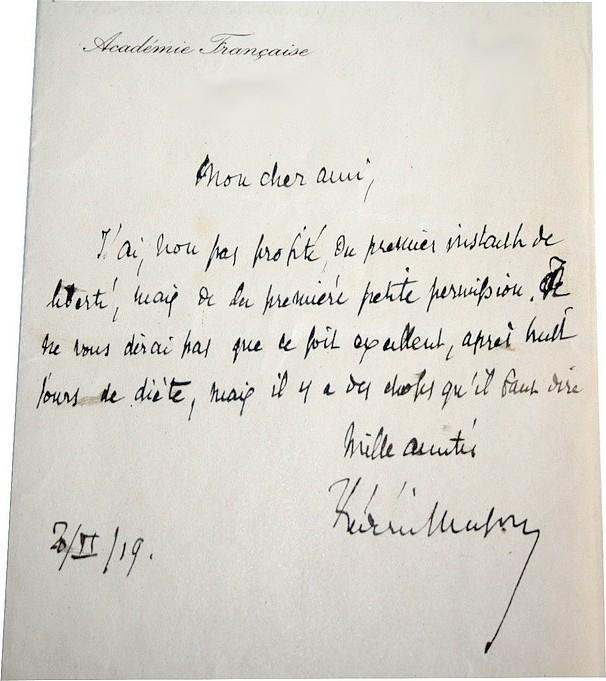 Académie Française
Mon cher ami,
J'ai, non pas profité, du premier instant de
liberté, mais de la première petite permission. Je
ne vous dirai pas que ce soit excellent, après huit
jours de diète, mais il y a des choses qu'il faut dire
Mille amitiés
Frédéric Masson
/II/19.